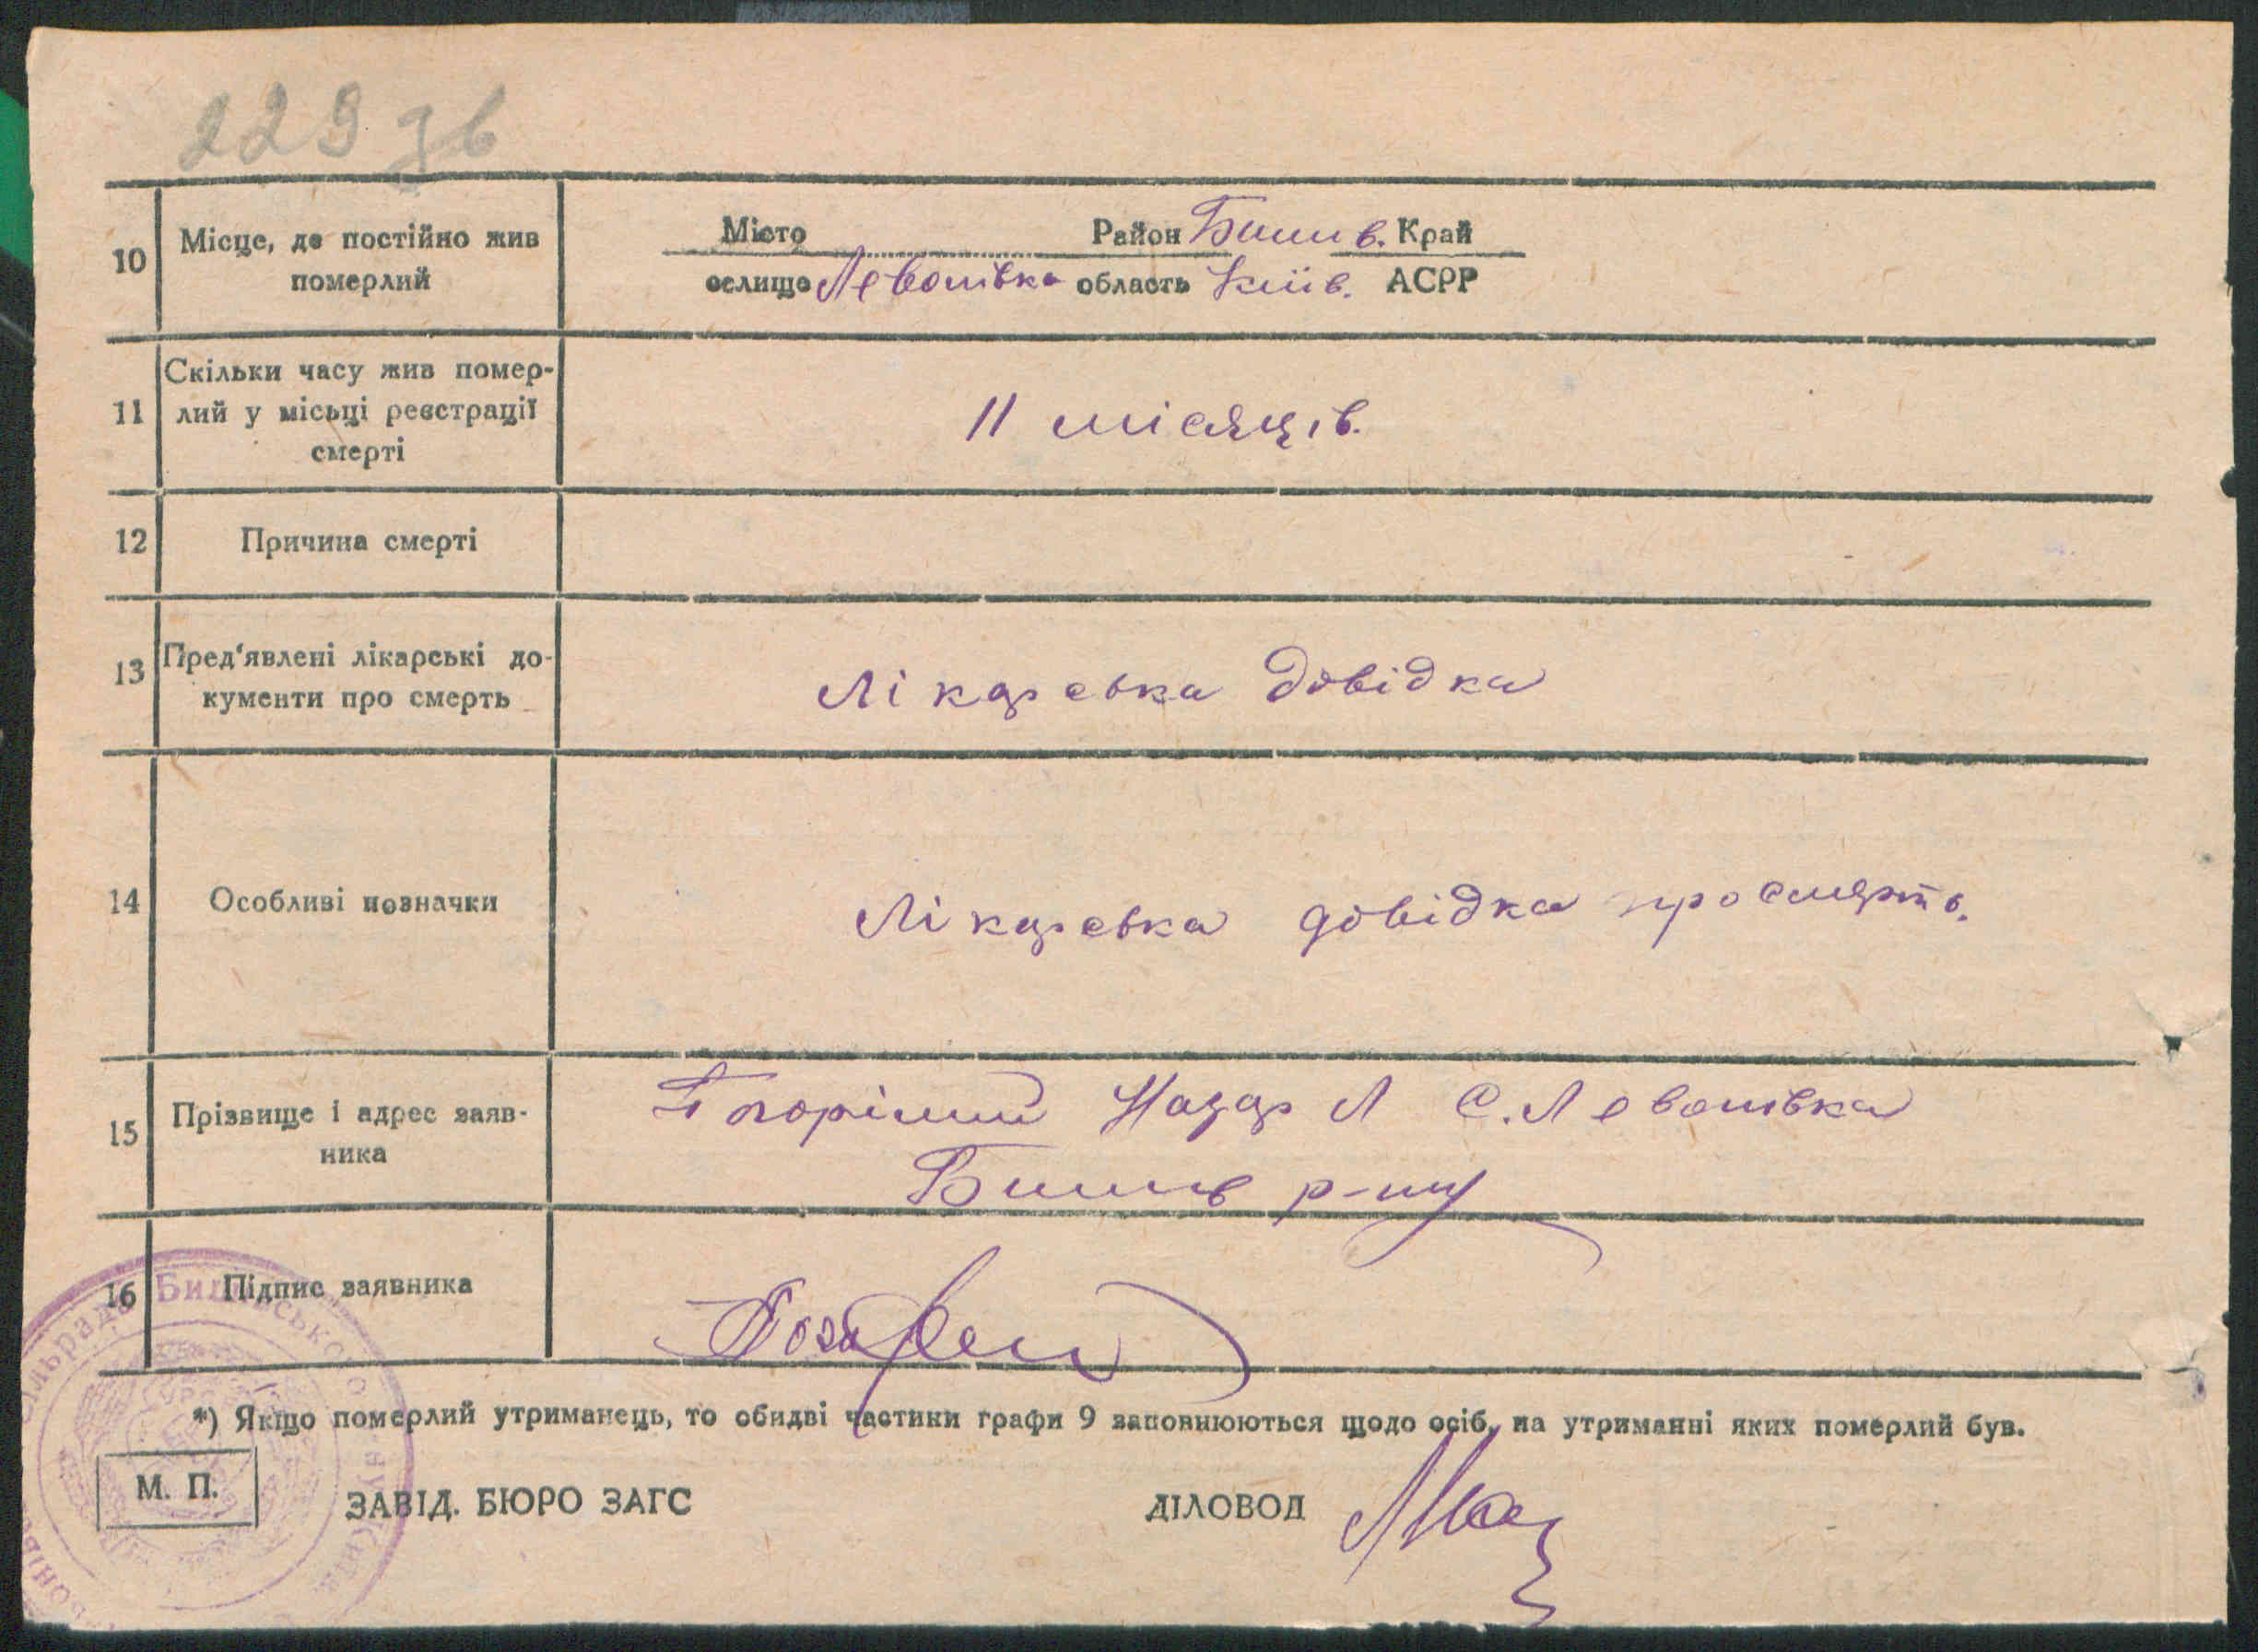 229 зв
10 Місце, де постійно жив померлий
Місто Район Бишів. Край
селище Левонівка область Київ. АСРР
11 Скільки часу жив помер-
лий у місьці реєстрації
смерті
11 місяців.
12 Причина смерті
13 Пред'явлені лікарські до-
кументи про смерть
Лікарська довідка
14 Особливі позначки
Лікарська довідка про смерть.
15 Прізвище і адрес заяв-
ника
Погорілий Назар Л с. Левонівка
Бишів р-ну
16 Підпис заявника
*) Якщо померлий утриманець, то обидві частини графи 9 заповнюються щодо осіб, на утриманні яких померлий був.
М. П.
ЗАВІД. БЮРО ЗАГС
ДІЛОВОД